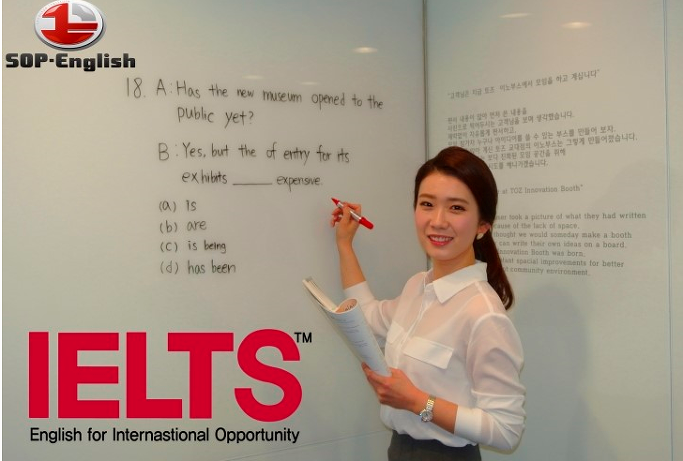 SOP-English
18. A: Has the new museum opened to the
public yet?
B: Yes, but the of entry for its
exhibits _____ expensive.
(a) Is
(b) are
(c) is being
(d) has been
"고객님은 지금 토즈 이노부스에서 모임을 하고 계십니다"
at TOZ Innovation Booth"
took a picture of what they had written
of the lack of space.
thought we would someday make a booth
can write their own ideas on a board.
Booth was born.
spacial improvements for better
community environment.
IELTS™
English for Internastional Opportunity